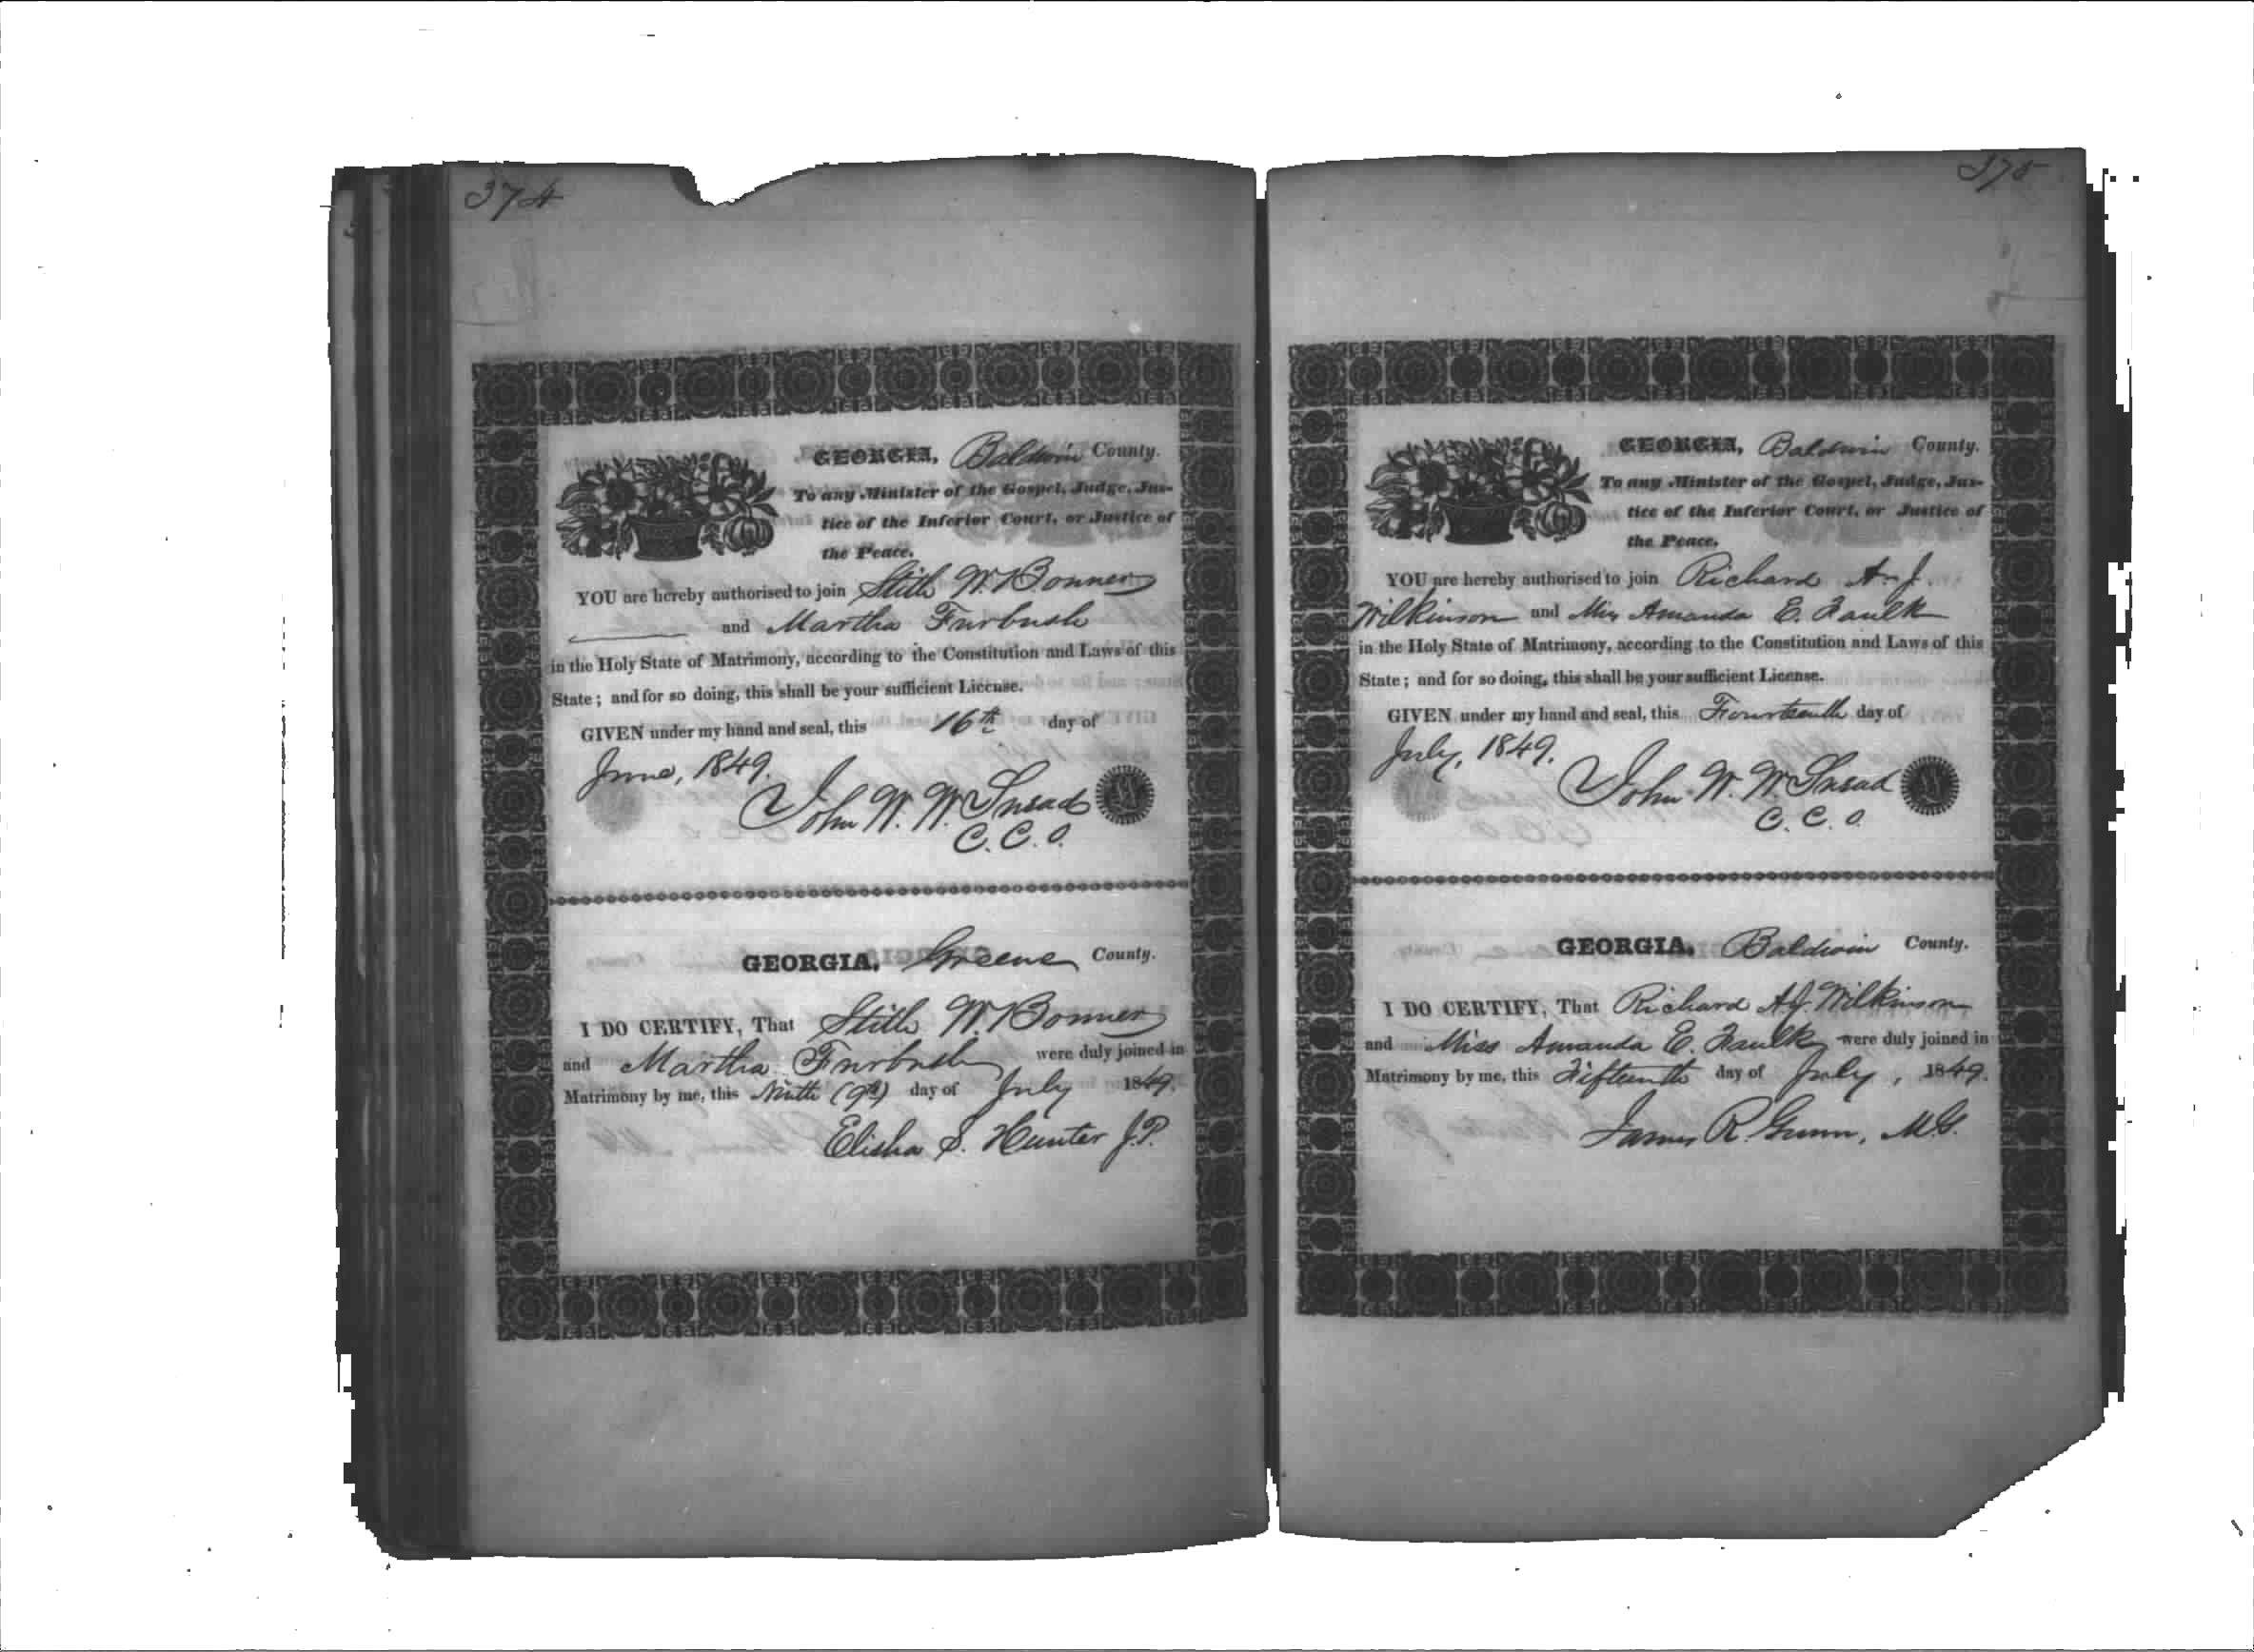 374
GEORGIA, Baldwin County.
To any Minister of the Gospel, Judge, Jus-
tice of the Inferior Court, or Justice of
the Peace.
YOU are hereby authorised to join Stith W. Bonner
and Martha Furbush
in the Holy State of Matrimony, according to the Constitution and Laws of this
State; and for so doing, this shall be your sufficient License.
GIVEN under my hand and seal, this 16th day of
June, 1849.
John W. W. Snead
C. C. O.
GEORGIA, Greene County.
I DO CERTIFY, That Stith W. Bonner
and Martha Furbush were duly joined in
Matrimony by me, this Ninth (9th) day of July 1849.
Elisha S. Hunter J.P.
375
GEORGIA, Baldwin County.
To any Minister of the Gospel, Judge, Jus-
tice of the Inferior Court, or Justice of
the Peace.
YOU are hereby authorised to join Richard A. J.
Wilkinson and Miss Amanda E. Faulk
in the Holy State of Matrimony, according to the Constitution and Laws of this
State; and for so doing, this shall be your sufficient License.
GIVEN under my hand and seal, this Fourteenth day of
July, 1849.
John W. W. Snead
C. C. O.
GEORGIA, Baldwin County.
I DO CERTIFY, That Richard A. J. Wilkinson
and Miss Amanda E. Faulk were duly joined in
Matrimony by me, this Fifteenth day of July, 1849.
James R. Gunn, M.G.